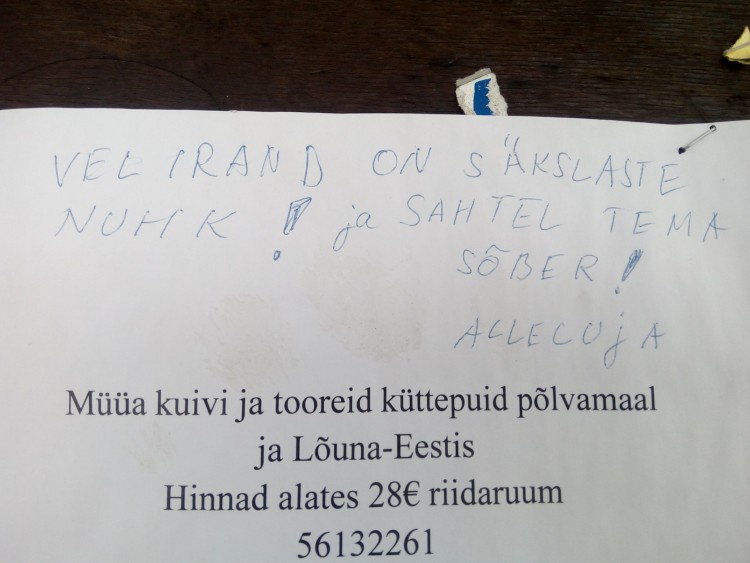 VELIRAND ON SÄKSLASTE
NUHK! ja SAHTEL TEMA
SÕBER!
ALLELUjA
Müüa kuivi ja tooreid küttepuid põlvamaal
ja Lõuna-Eestis
Hinnad alates 28€ riidaruum
56132261